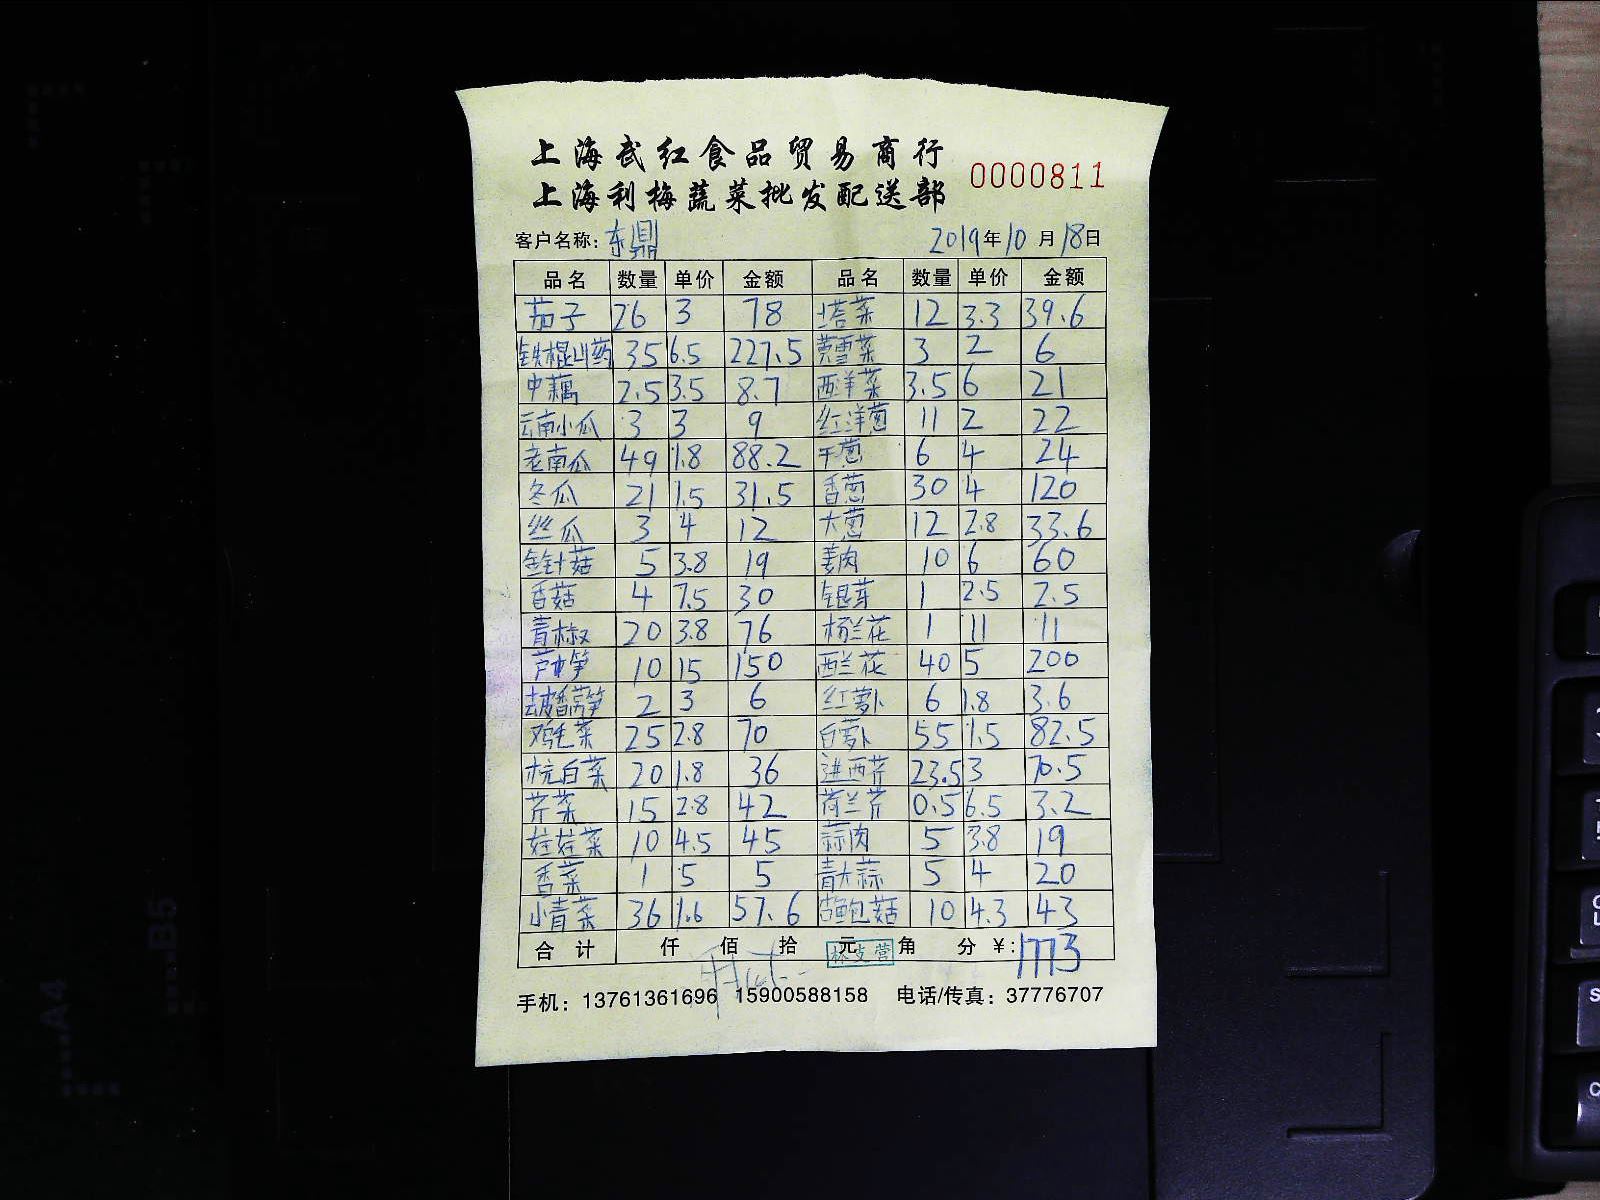 上海武红食品贸易商行
上海利梅蔬菜批发配送部 0000811
客户名称: 东鼎 2019年10月18日
品名 数量 单价 金额 品名 数量 单价 金额
茄子 26 3 78 塔菜 12 3.3 39.6
铁棍山药 35 6.5 227.5 雪菜 3 2 6
中藕 2.5 3.5 8.7 西洋菜 3.5 6 21
云南小瓜 3 3 9 红洋葱 11 2 22
老南瓜 49 1.8 88.2 干葱 6 4 24
冬瓜 21 1.5 31.5 香葱 30 4 120
丝瓜 3 4 12 大葱 12 2.8 33.6
金针菇 5 3.8 19 姜肉 10 6 60
香菇 4 7.5 30 银芽 1 2.5 2.5
青椒 20 3.8 76 杨兰花 1 11 11
芦笋 10 15 150 西兰花 40 5 200
去皮香莴笋 2 3 6 红萝卜 6 1.8 3.6
鸡毛菜 25 2.8 70 白萝卜 55 1.5 82.5
杭白菜 20 1.8 36 进西芹 23.5 3 70.5
芹菜 15 2.8 42 荷兰芹 0.5 6.5 3.2
娃娃菜 10 4.5 45 蒜肉 5 3.8 19
香菜 1 5 5 青大蒜 5 4 20
小青菜 36 1.6 57.6 鲍菇 10 4.3 43
合计 仟 佰 拾 元 角 分 ¥: 1773
林支营
手机: 13761361696 15900588158 电话/传真: 37776707
A4
B5